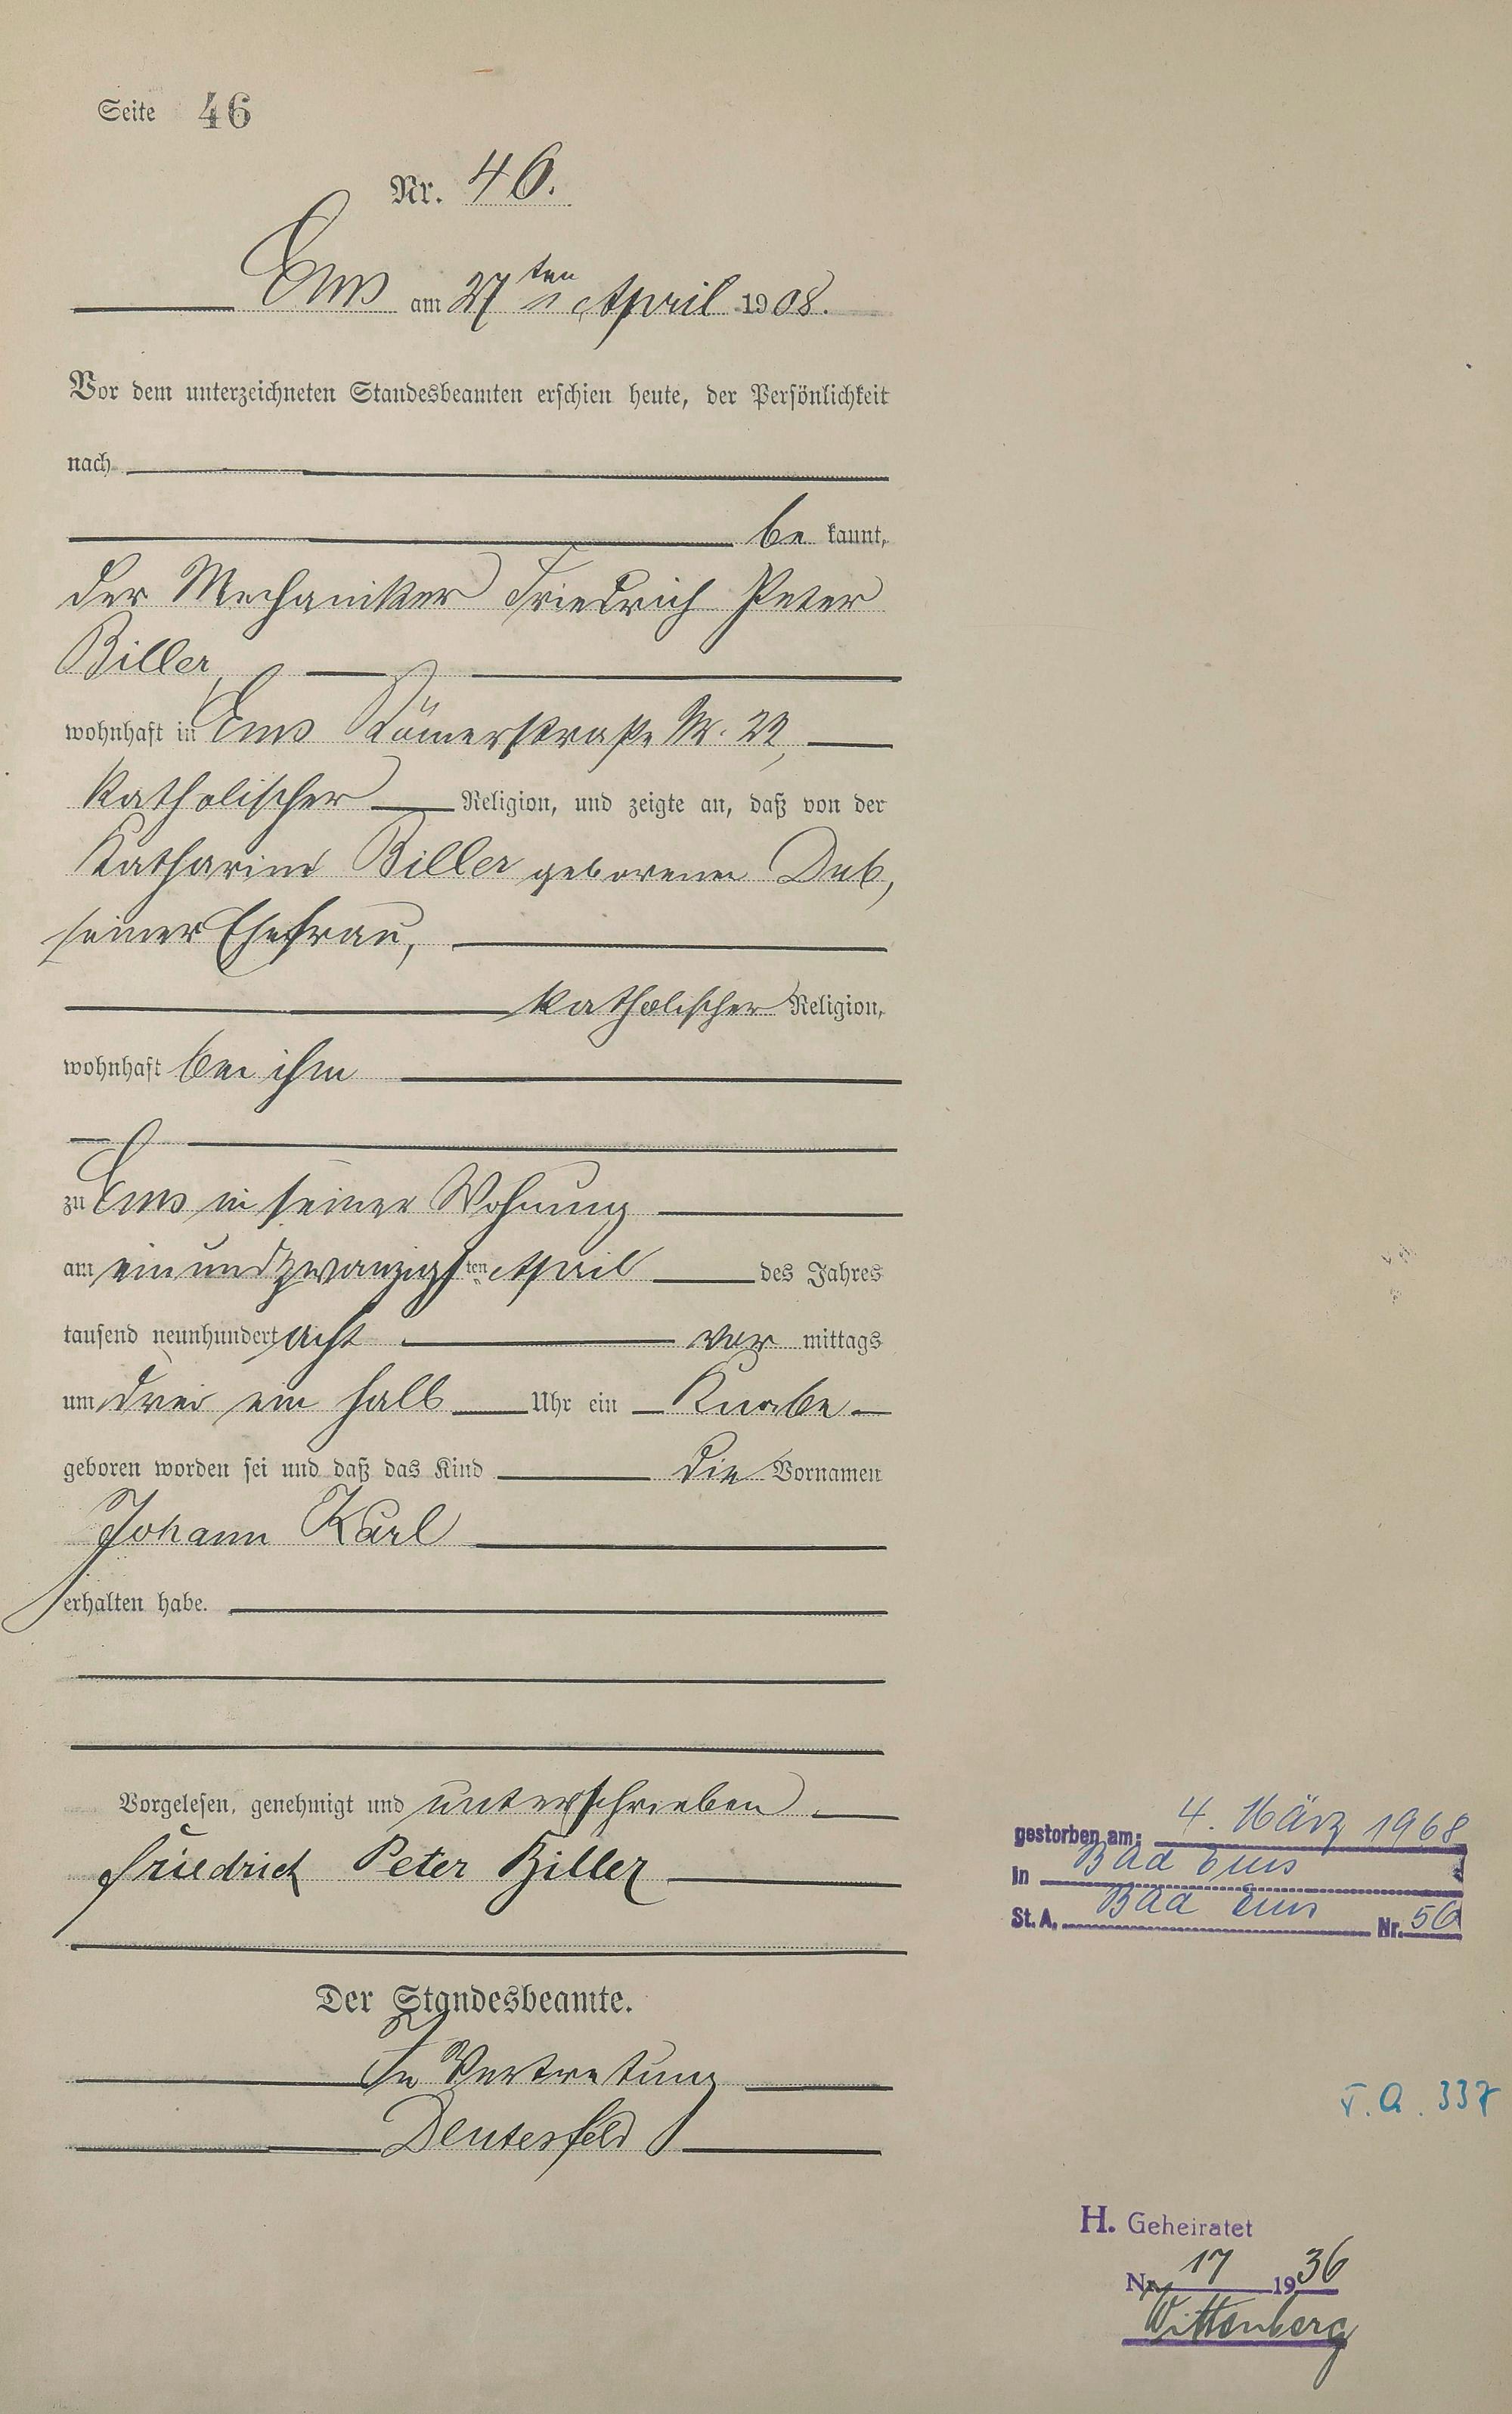 Seite 46
Nr. 46.
Ems am 27ten April 1908.
Vor dem unterzeichneten Standesbeamten erschien heute, der Persönlichkeit
nach
bekannt,
der Mechaniker Friedrich Peter
Biller,
wohnhaft in Ems Römerstraße Nr. 22,
katholischer Religion, und zeigte an, daß von der
Katharina Biller geborenen
seiner Ehefrau,
katholischer Religion,
wohnhaft bei ihm
zu Ems in seiner Wohnung
am einundzwanzigsten April des Jahres
tausend neunhundert acht vormittags
um drei ein halb Uhr ein Knabe
geboren worden sei und daß das Kind die Vornamen
Johann Karl
erhalten habe.
Vorgelesen, genehmigt und unterschrieben.
Friedrich Peter Biller
Der Standesbeamte.
In Vertretung
gestorben am: 4. März 1968
in Bad Ems
St. A. Bad Ems Nr. 56
337
H. Geheiratet
Nr. 17 1936
Wittenberg